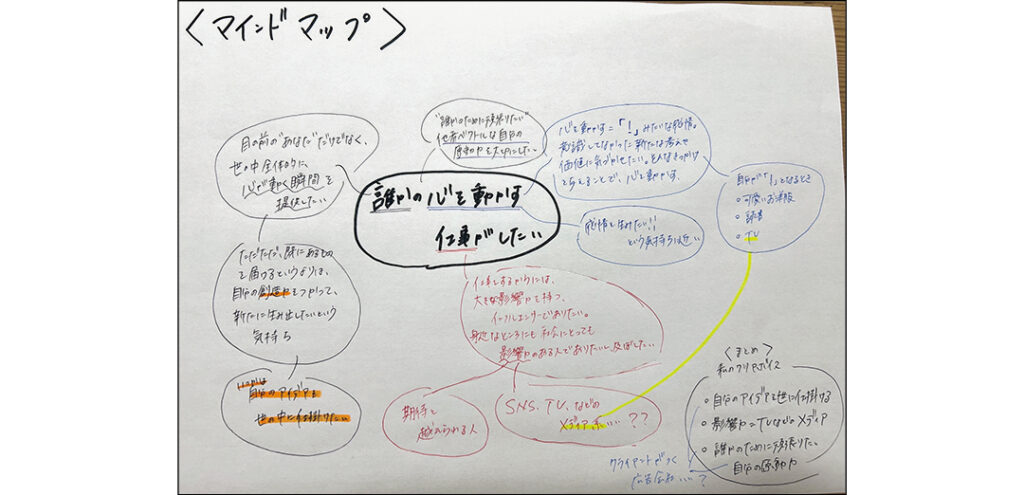 〈マインドマップ〉
誰かの心を動かす
仕事がしたい
目の前の"あなた"だけでなく、
世の中全体的に、
心が動く瞬間を
提供したい
"誰かのために頑張りたい"
他者ベクトルな自分の
原動力を大切にしたい
心を動かす=「!」みたいな感情。
意識してなかった新たな考えや
価値に気づかせたい。そんなきっかけ
を与えることで、心を動かす。
自分が「!」となるとき
・可愛いお洋服
・読書
・TV
感情を生みたい!!
という気持ちに近い
ただただ、既にあるもの
を届けるというよりは、
自分の創造力をつかって、
新たに生み出したいという
気持ち
いつかは
自分のアイデアを
世の中に仕掛けたい
仕事をするからには、
大きな影響力を持つ、
インフルエンサーでありたい。
身近なところにも 社会にとっても
影響力のある人でありたいし及ぼしたい
期待を
越えられる人
SNS、TV、などの
メディア系...??
〈まとめ〉
私のクリアボイス
・自分のアイデアを世に仕掛ける
・影響力=TVなどのメディア
・誰かのために頑張りたい。
自分の原動力
クライアントがつく
広告会社...?